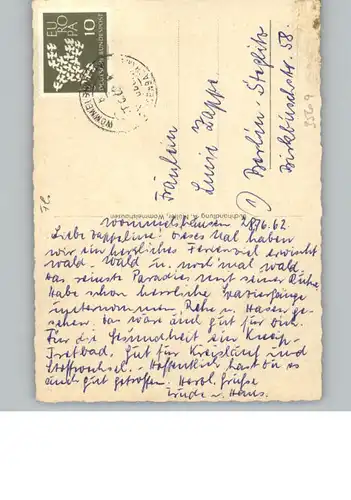 EUROPA
10
DEUTSCHE BUNDESPOST
Fräulein
Luise Zappe
1) Berlin-Steglitz
Birkbuschstr. 58
Buchhandlung A. Müller, Wommelshausen
Wommelshausen 28/6.62.
Liebe Zappeline! Dieses Mal haben
wir ein herrliches Ferienziel erwischt
Wald, Wald u. nochmal Wald.
Das reinste Paradies mit seiner Ruhe
Habe schon herrliche Spaziergänge
unternommen, Rehe u. Hasen ge-
sehen. Das wäre auch gut für Dich.
Für die Gesundheit ein Kneip-
Tretbad. Gut für Kreislauf und
Stoffwechsel. - Hoffentlich hast Du es
auch gut getroffen. Herzl. Grüße
Trude u. Hans.